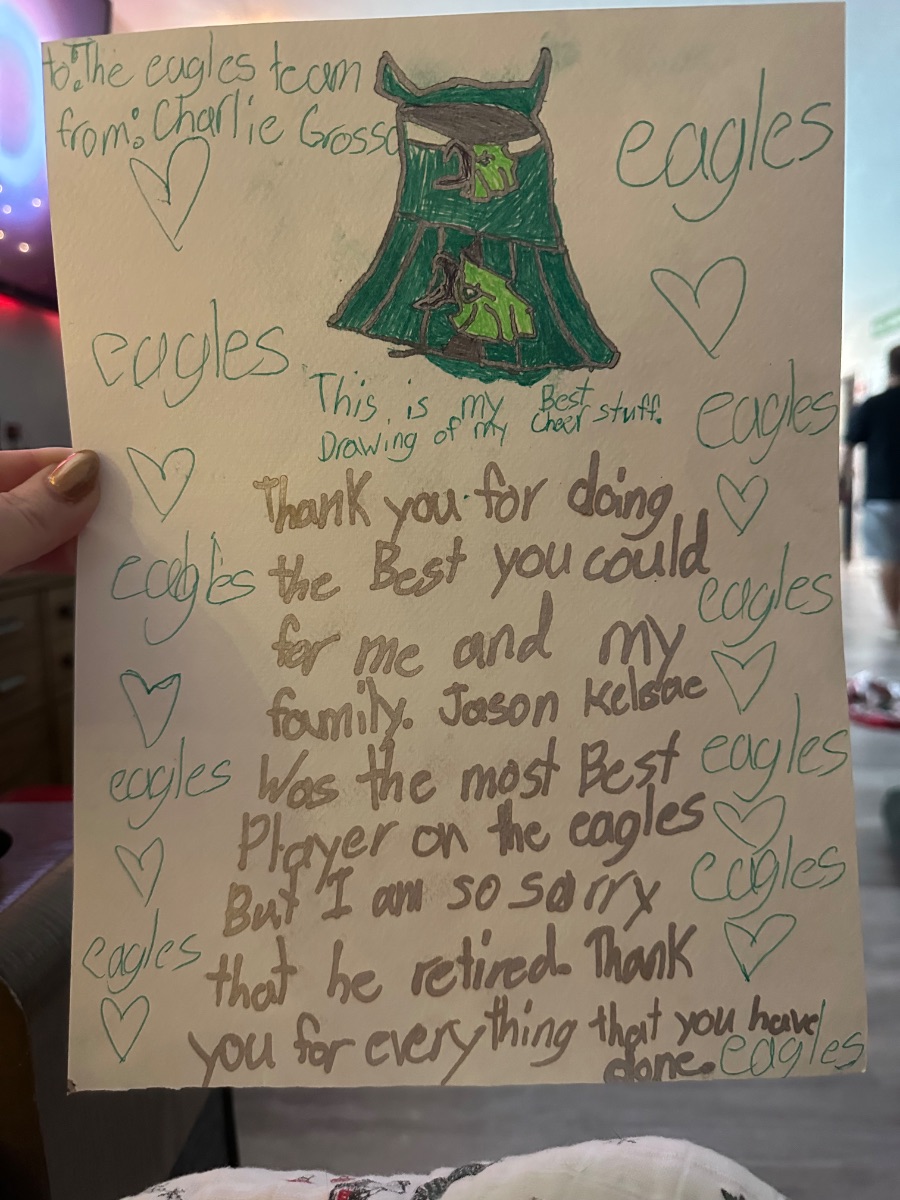 to: The eagles team
from: Charlie Grosso
eagles
eagles
This is my Best
Drawing of my Cheer stuff.
eagles
Thank you for doing
the Best you could
for me and my
family. Jason Kelsae
Was the most Best
Player on the eagles
But I am so sorry
that he retired. Thank
you for everything that you have
done.
eagles
eagles
eagles
eagles
eagles
eagles
eagles